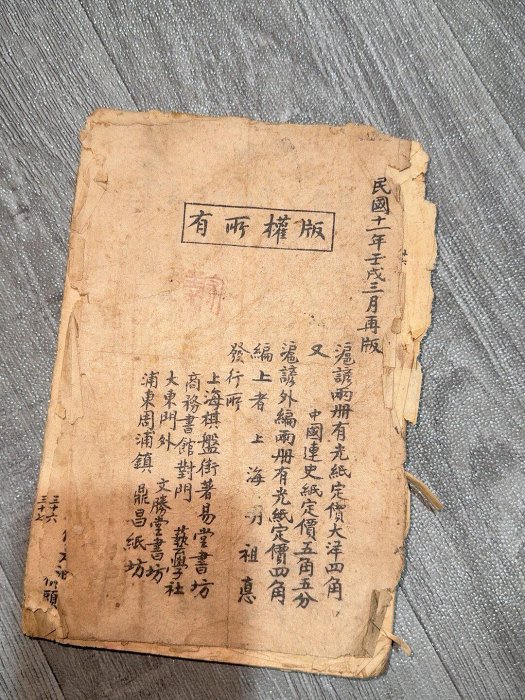 民國十一年壬戌三月再版
版權所有
滬諺兩册有光紙定價大洋四角
又 中國連史紙定價五角五分
滬諺外編兩册有光紙定價四角
編上者 上海 祖悳
發行所
上海棋盤街著易堂書坊
商務書館對門 藝學社
大東門外 文勝堂書坊
浦東周浦鎮 鼎昌紙坊
三十六
三十七